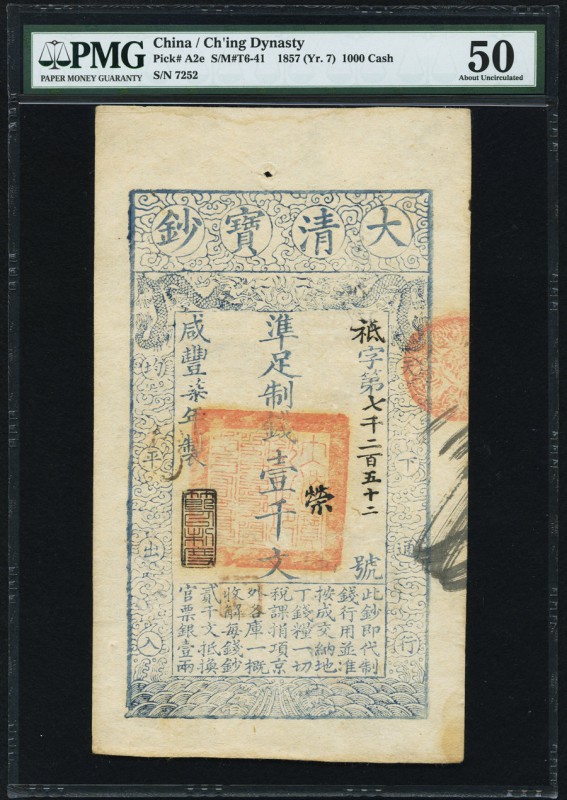 PMG
PAPER MONEY GUARANTY
China / Ch'ing Dynasty
Pick# A2e S/M#T6-41 1857 (Yr. 7) 1000 Cash
S/N 7252
50
About Uncirculated
大清寶鈔
祗字第七千二百五十二號
準足制錢壹千文
榮
咸豐柒年製
天下通行
均平出入
此鈔即代制
錢行用並准
按成交納地
丁錢糧一切
稅課捐項京
外各庫一概
收解每錢鈔
貳千文抵換
官票銀壹兩